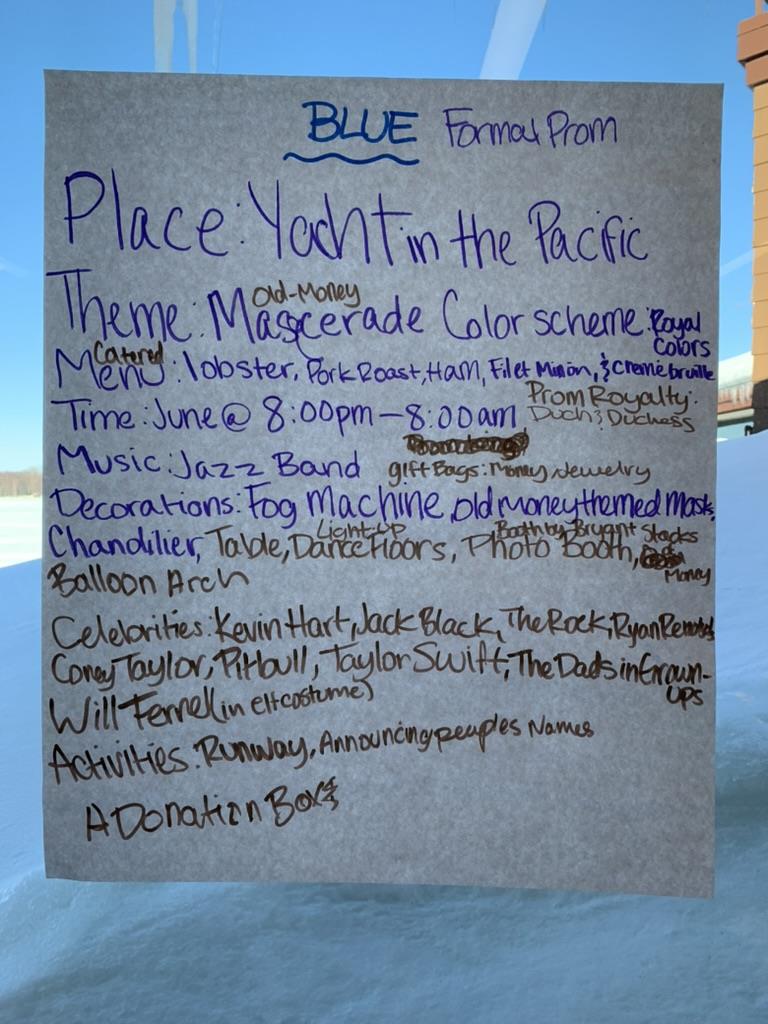 BLUE Formal Prom
Place: Yacht in the Pacific
Old-Money
Theme: Mascerade Color scheme: Royal Colors
Catered
Menu: lobster, Pork Roast, Ham, Filet Minion, & creme brulle
Prom Royalty:
Time: June @ 8:00pm - 8:00am Duch & Duchess
Music: Jazz Band giftBags: Money Jewelry
Decorations: Fog Machine, old money themed Mask,
Light-up Booth by Bryant Stacks of Money
Chandilier, Table, Dance Floors, Photo Booth,
Balloon Arch
Celebrities: Kevin Hart, Jack Black, The Rock, Ryan
Corey Taylor, Pitbull, Taylor Swift, The Dads in Grown-Ups
Will Ferrel (in elf costume)
Activities: Runway, Announcing peoples Names
A Donation Box